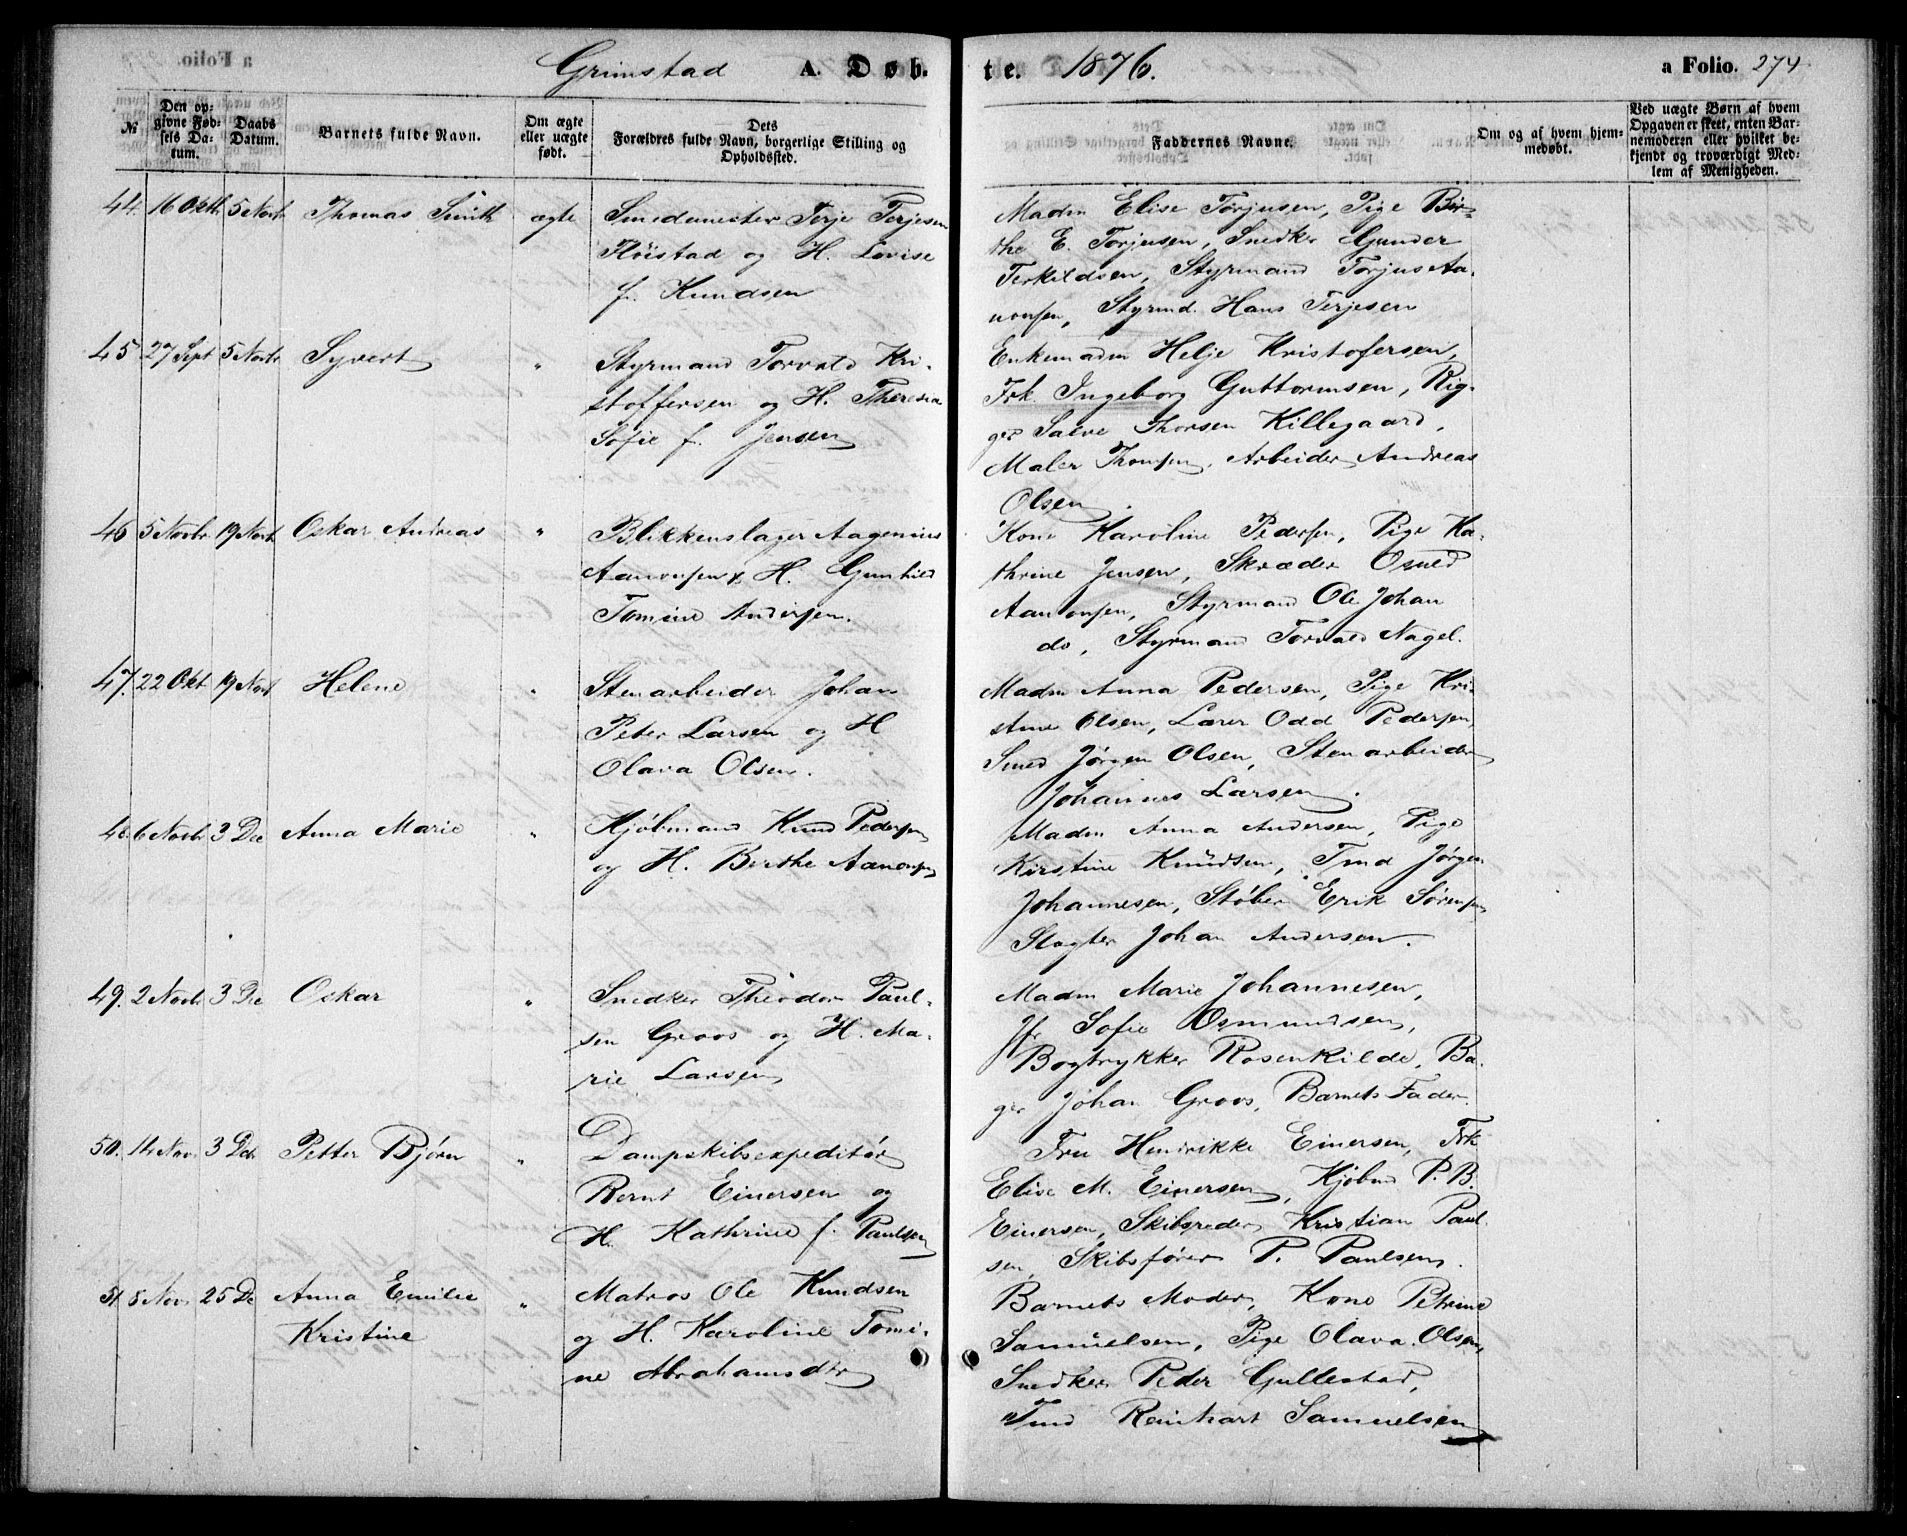 Grimstad A. Døb-
te. 1876. a Folio. 274
№
Den op-
givne Fød-
sels Da-
tum.
Daabs
Datum.
Barnets fulde Navn.
Om ægte
eller uægte
født.
Dets
Forældres fulde Navn, borgerlige Stilling og
Opholdssted.
Faddernes Navne.
Om og af hvem hjem-
medøbt.
Ved uægte Børn af hvem
Opgaven er skeet, enten Bar-
nemoderen eller hvilket be-
kjendt og troværdigt Med-
lem af Menigheden.
44. 16 Okt 5 Novb Thomas Smith ægte Smedmester Terje Terjesen
Fløistad og H. Lovise
f. Knudsen
Madm Elise Torjusen, Pige Bir-
the E. Torjusen, Snedker Gunder
Terkildsen, Styrmand Torjus Aa-
nonsen, Styrmd. Hans Terjesen
45. 27 Sept 5 Novbr Syvert " Styrmand Torvald Kri-
stoffersen og H. Theresia
Sofie f. Jensen
Enkemadm Helje Kristofersen,
Frk. Ingeborg Guttormsen, Rig-
ger Salve Thorsen Killegaard,
Maler Thomsen, Arbeider Andreas
Olsen.
46 5 Novbr. 19 Novb Oskar Andreas " Blikkenslager Aagenius
Aanonsen & H. Gunhild
Tomine Andersen.
Kone Karoline Pedersen, Pige Ka-
thrine Jensen, Skræder Osuld
Aanonsen, Styrmand Ole Johan
do, Styrmand Torvald Nagel.
47. 22 Okt 19 Novb Helene " Stenarbeider Johan
Peter Larsen og H
Olava Olsen.
Madm Anna Pedersen, Pige Kri-
stine Olsen, Lærer Odd Pedersen,
Smed Jørgen Olsen, Stenarbeider
Johannes Larsen.
48. 6 Novb 3 Dec Anna Marie " Kjøbmand Knud Pedersen
og H. Berthe Aanonsen
Madm Anna Andersen, Pige
Kirstine Knudsen, Tmd Jørgen
Johannesen, Støber Erik Sørensen,
Slagter Johan Andersen.
49. 2 Novb 3 De Oskar " Snedker Theodor Paul-
sen Groos og H. Ma-
rie Larsen
Madm Marie Johannesen,
Jfr Sofie Osmundsen,
Bogtrykker Rosenkilde, Ba-
ger Johan Groos, Barnets Fader.
50. 14 Nov. 3 Det Petter Bjørn " Dampskibsexpeditør
Bernt Einersen og
H. Kathrine f. Paulsen
Fru Henrikke Einersen, Frk
Elise M. Einersen, Kjøbmd P. B.
Einersen, Skibsreder Kristian Paul-
sen, Skibsfører P. Paulsen.
51. 8 Nov. 25 De Anna Emilie
Kristine " Matros Ole Knudsen
og H. Karoline Tomi-
ne Abrahamsdtr
Barnets Moder, Kone Petrine
Samuelsen, Pige Olava Olsen,
Snedker Peder Gullestad,
Tmd Reinhart Samuelsen